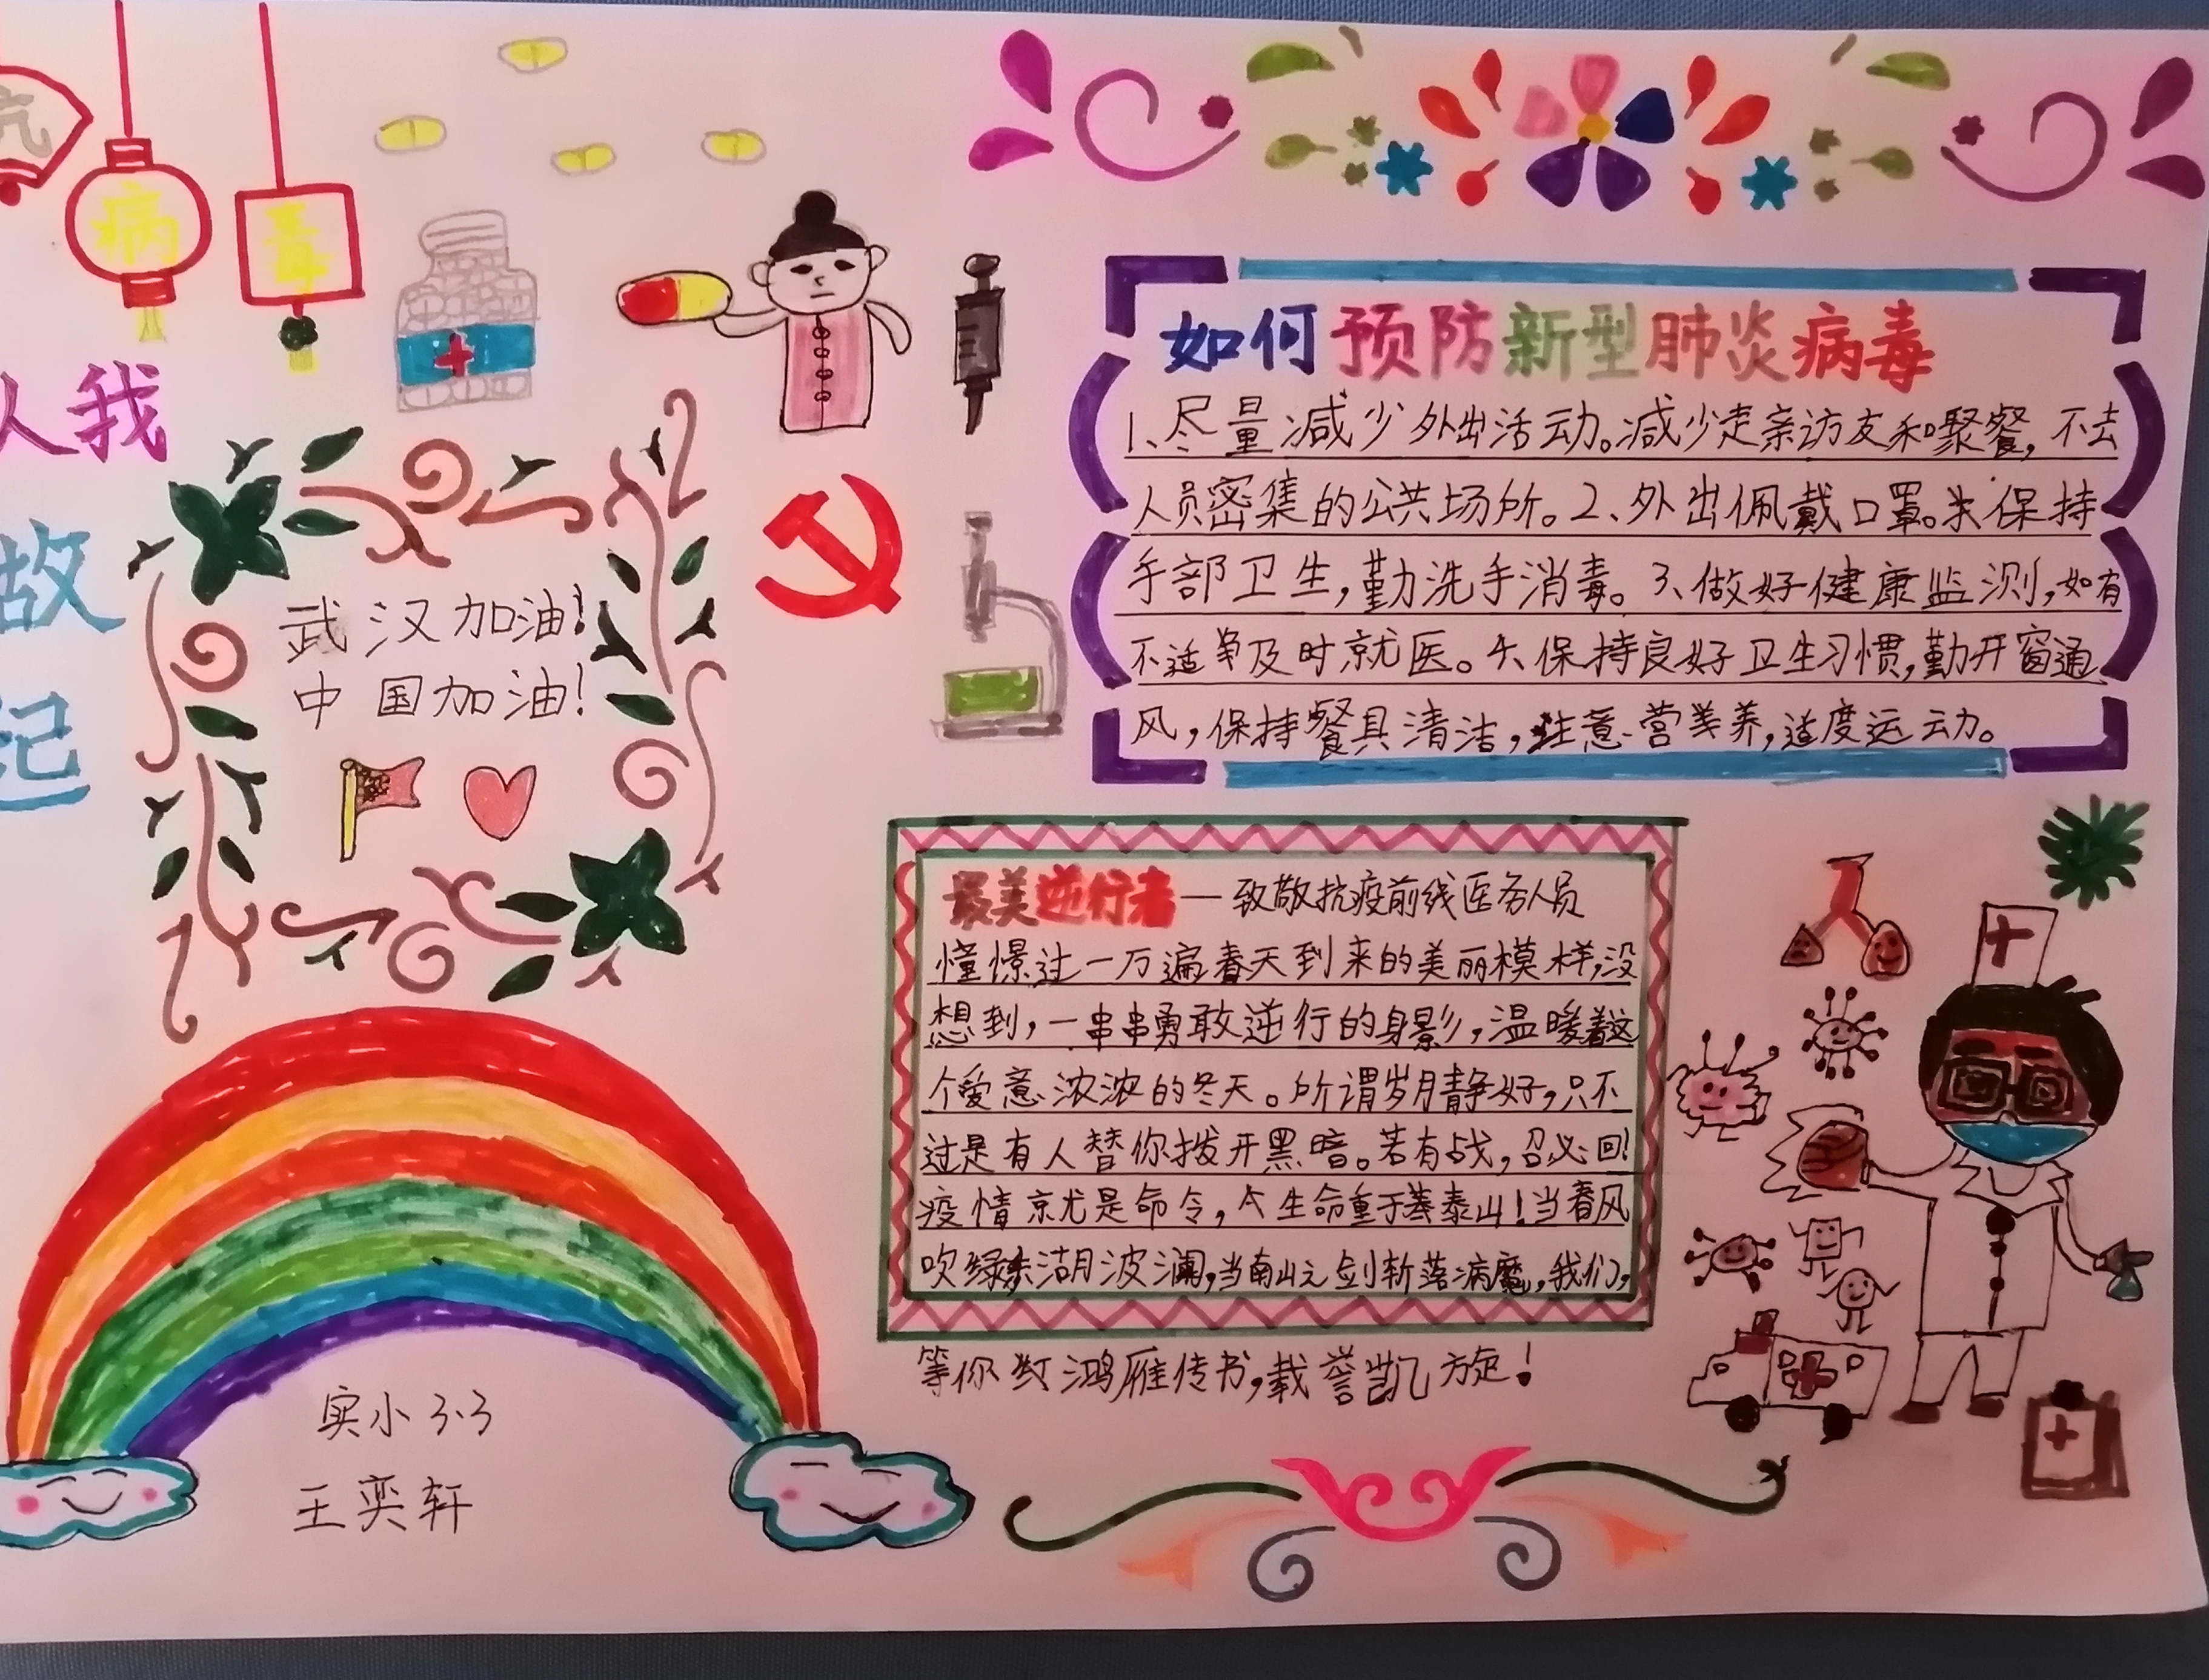 抗
病
毒
人我
故
起
武汉加油!
中国加油!
实小3.3
王奕轩
如何预防新型肺炎病毒
1、尽量减少外出活动。减少走亲访友和聚餐,不去
人员密集的公共场所。2、外出佩戴口罩。保持
手部卫生,勤洗手消毒。3、做好健康监测,如有
不适等及时就医。4、保持良好卫生习惯,勤开窗通
风,保持餐具清洁,注意营养,适度运动。
最美逆行者—致敬抗疫前线医务人员
憧憬过一万遍春天到来的美丽模样,没
想到,一串串勇敢逆行的身影,温暖着这
个爱意浓浓的冬天。所谓岁月静好,只不
过是有人替你拨开黑暗。若有战,召必回!
疫情就是命令,生命重于泰山!当春风
吹绿东湖波澜,当南山之剑斩落病魔,我们,
等你红鸿雁传书,载誉凯旋!